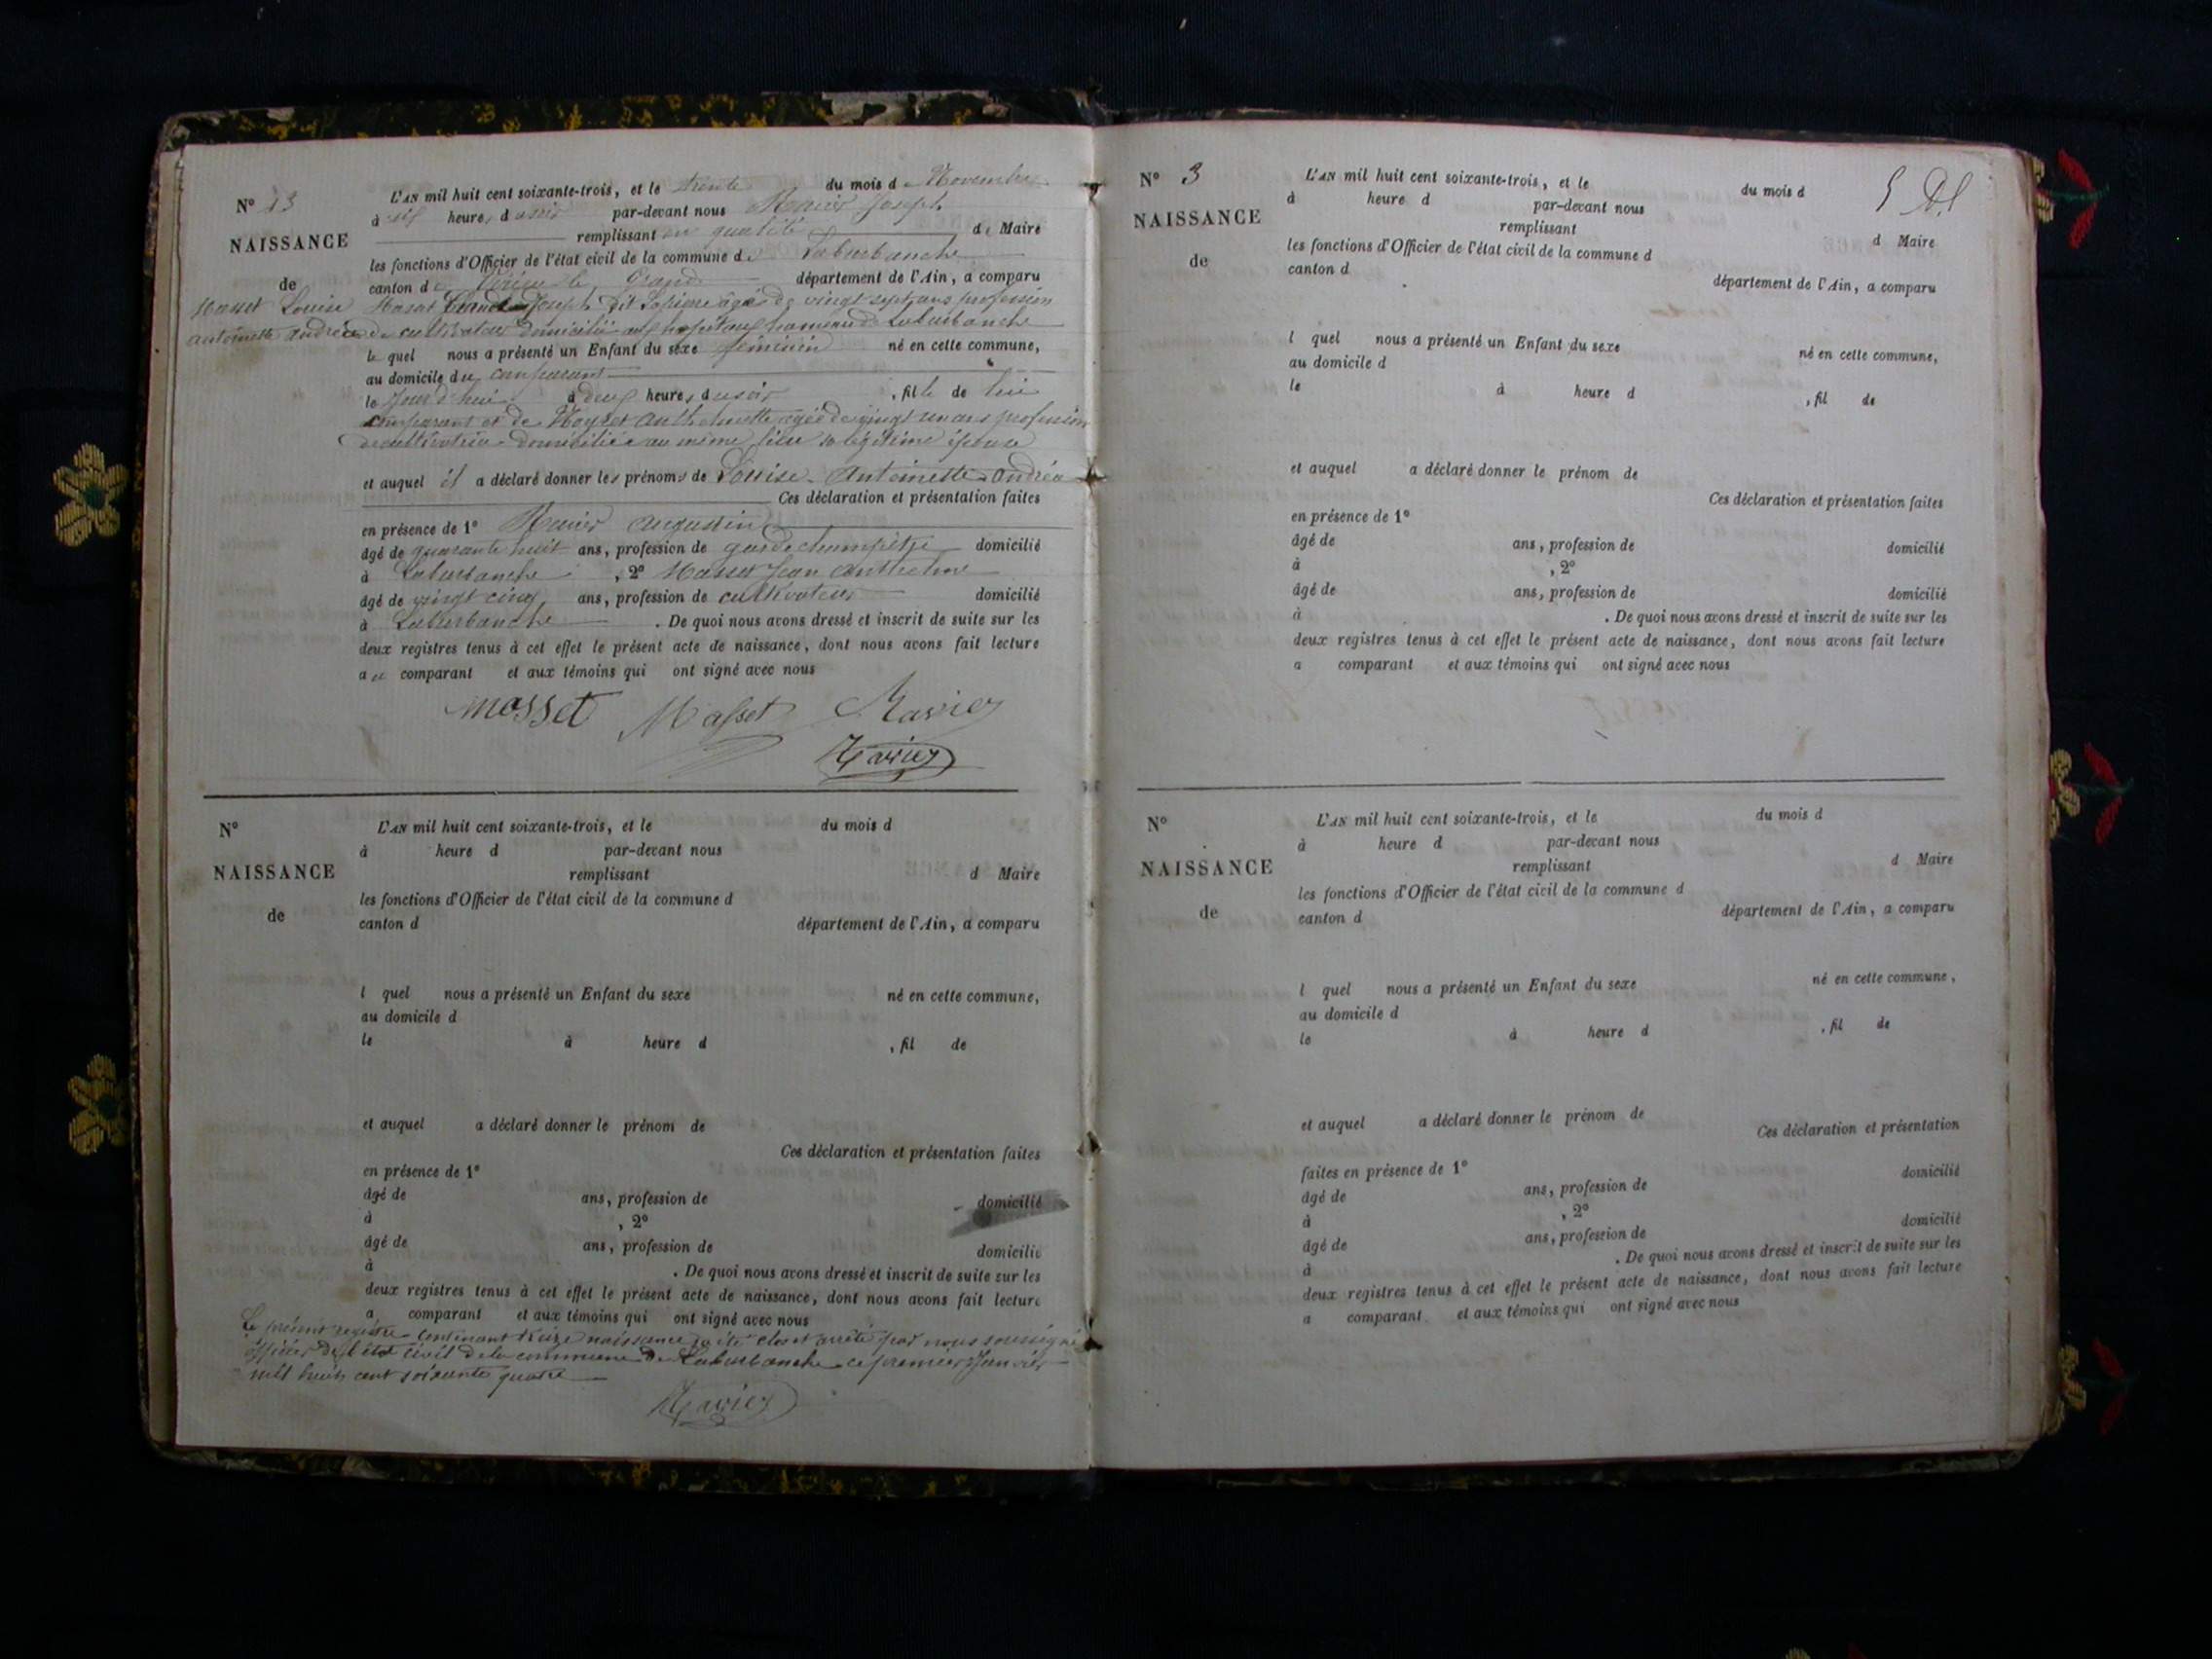 N° 13
NAISSANCE
de
Masset Louise
antoinette andréa
L'AN mil huit cent soixante-trois, et le trente du mois de Novembre
à six heures du soir par-devant nous Ravier Joseph
remplissant en qualité de Maire
les fonctions d'Officier de l'état civil de la commune de Laburbanche
canton de Virieu le Grand département de l'Ain, a comparu
Masset Claude Joseph dit Lapierre âgé de vingt sept ans profession
de cultivateur domicilié aux hopitaux hameau de Laburbanche
le quel nous a présenté un Enfant du sexe féminin né en cette commune,
au domicile du comparant
le jour d'hui à deux heures du soir, fille de lui
comparant et de anthelmette âgée de vingt un ans profession
de cultivatrice domiciliée au même lieu sa légitime épouse
et auquel il a déclaré donner les prénoms de Louise Antoinette Andréa
Ces déclaration et présentation faites
en présence de 1° Ravier Augustin
âgé de quarante huit ans, profession de garde champêtre domicilié
à Laburbanche, 2° Masset Jean Anthelme
âgé de vingt cinq ans, profession de cultivateur domicilié
à Laburbanche. De quoi nous avons dressé et inscrit de suite sur les
deux registres tenus à cet effet le présent acte de naissance, dont nous avons fait lecture
au comparant et aux témoins qui ont signé avec nous
masset Masset Ravier
Ravier
N°
NAISSANCE
de
L'AN mil huit cent soixante-trois, et le du mois d
à heure d par-devant nous
remplissant d Maire
les fonctions d'Officier de l'état civil de la commune d
canton d département de l'Ain, a comparu
l quel nous a présenté un Enfant du sexe né en cette commune,
au domicile d
le à heure d , fil de
et auquel a déclaré donner le prénom de
Ces déclaration et présentation faites
en présence de 1°
âgé de ans, profession de domicilié
à , 2°
âgé de ans, profession de domicilié
à . De quoi nous avons dressé et inscrit de suite sur les
deux registres tenus à cet effet le présent acte de naissance, dont nous avons fait lecture
a comparant et aux témoins qui ont signé avec nous
Le présent registre contenant treize naissances a été clos et arrêté par nous soussigné
officier de l'état civil de la commune de Laburbanche ce premier Janvier
mil huit cent soixante quatre
Ravier
N° 3
NAISSANCE
de
5
L'AN mil huit cent soixante-trois, et le du mois d
à heure d par-devant nous
remplissant d Maire
les fonctions d'Officier de l'état civil de la commune d
canton d département de l'Ain, a comparu
l quel nous a présenté un Enfant du sexe né en cette commune,
au domicile d
le à heure d , fil de
et auquel a déclaré donner le prénom de
Ces déclaration et présentation faites
en présence de 1°
âgé de ans, profession de domicilié
à , 2°
âgé de ans, profession de domicilié
à . De quoi nous avons dressé et inscrit de suite sur les
deux registres tenus à cet effet le présent acte de naissance, dont nous avons fait lecture
a comparant et aux témoins qui ont signé avec nous
N°
NAISSANCE
de
L'AN mil huit cent soixante-trois, et le du mois d
à heure d par-devant nous
remplissant d Maire
les fonctions d'Officier de l'état civil de la commune d
canton d département de l'Ain, a comparu
l quel nous a présenté un Enfant du sexe né en cette commune,
au domicile d
le à heure d , fil de
et auquel a déclaré donner le prénom de
Ces déclaration et présentation
faites en présence de 1° domicilié
âgé de ans, profession de
à , 2° domicilié
âgé de ans, profession de
à . De quoi nous avons dressé et inscrit de suite sur les
deux registres tenus à cet effet le présent acte de naissance, dont nous avons fait lecture
a comparant et aux témoins qui ont signé avec nous